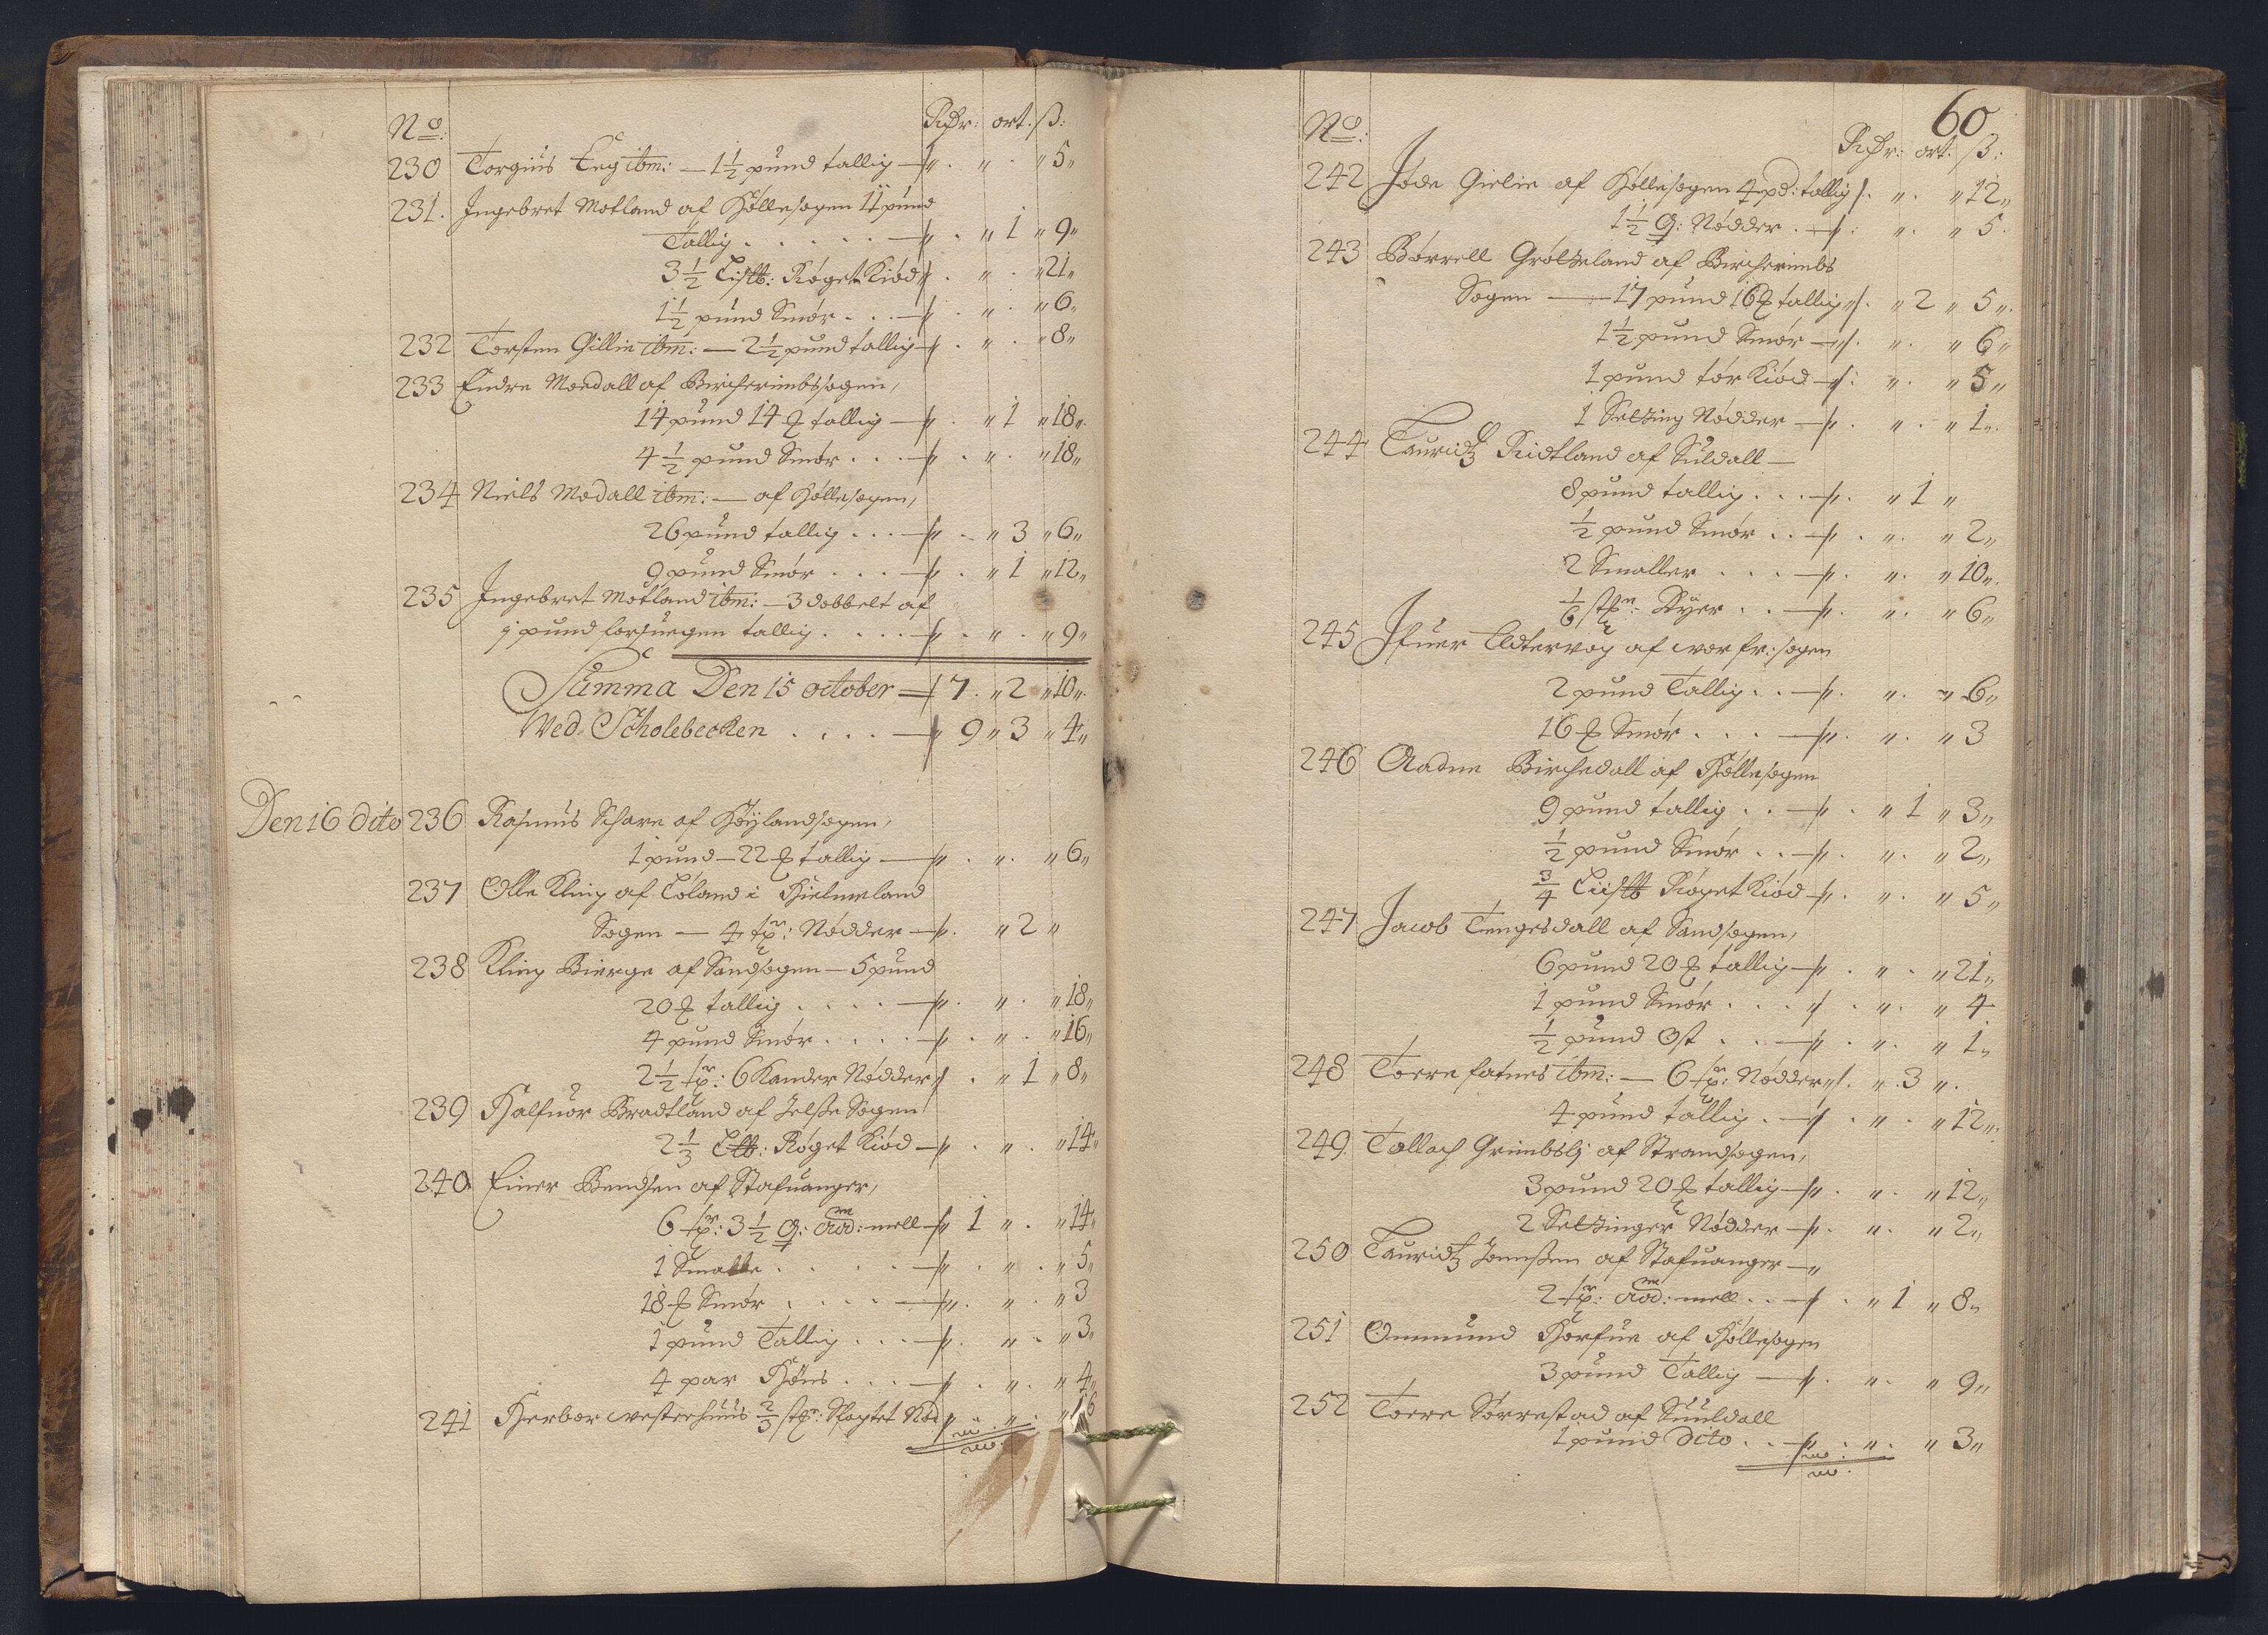 No: Rdr: ort: ß:
230 Torgius Eeg ibm: — 1½ pund tallig — „ . „ . „ 5„
231. Ingebret Motland af Høllesogen 11 pund
Tallig . . . . . — „ . „ 1 „ 9„
3½ Lis℔: Røget Kiød „ . „ . „ 21„
1½ pund Smør . . . — „ . „ . „ 6„
232 Torsten Gillie ibm: — 2½ pund tallig — „ . „ . „ 8„
233 Endre Moedall af Bircherimbssogen,
14 pund 14 ℔ tallig — „ . „ 1 „ 18„
4½ pund Smør . . . — „ . „ . „ 18„
234 Niels Modall ibm: — af Høllesogen,
26 pund tallig . . . — „ . „ 3 „ 6„
9 pund Smør . . . — „ . „ 1 „ 12„
235 Ingebret Motland ibm: — 3 dobbelt af
j pund forsuegen tallig . . . . — „ . „ . „ 9„
Summa Den 15 october — 7 . „ 2 „ 10„
Ved Scholebecken . . . . — „ 9 „ 3 „ 4„
Den 16 dito 236 Rasmus Schare af Høÿlandsogen,
1 pund — 22 ℔ tallig — „ . „ . „ 6„
237 Olle Kling af Loland i Hielmeland
Sogen — 4 spr: Nødder — „ . „ 2 „
238 Kling Bierge af Sandsogen — 5 pund
20 ℔ tallig . . . . — „ . „ . „ 18„
4 pund Smør . . . . — „ . „ . „ 16„
2½ spr: 6 Kander Nødder „ . „ 1 „ 8„
239 Halfuor Bradtland af Jelsße Sogen
2⅓ L℔: Røget Kiød — „ . „ . „ 14„
240 Einer Bendsen af Stafuanger,
6 spr: 3½ q: mell — „ 1 „ . „ 14„
1 Smalle . . . . . — „ . „ . „ 5„
18 ℔ Smør . . . . — „ . „ . „ 3
1 pund Tallig . . . — „ . „ . „ 3„
4 par Høns . . . — „ . „ . „ 4„
241 Herbor westerhuus ⅔ Kiød „ „ . „ 16
60
No: Rdr: ort: ß:
242 Jode Gielie af Høllesogen 4 pd: tallig . „ . „ 12„
1½ q: Nødder . — „ : „ . „ 5 .
243 Børrell Grøtzeland af Bircherimbs
Sogen — 17 pund 16 ℔ tallig „ . „ 2 „ 5„.
1½ pund Smør — „ . „ . „ 6„
1 pund tør Kiød — „ : „ . „ 5„
1 Setting Nødder — „ . „ . „ 1„.
244 Lauridtz Ridtland af Suldall —
8 pund tallig . . . — „ . „ 1 „
½ pund Smør . . — „ . „ . „ 2„
2 Smaller . . . — „ . „ . „ 10„.
⅙ Ryer . . — „ . „ . „ 6„
245 Ifuer Eldtervog af wor fr: sogen
2 pund Tallig . . — „ . „ . „ 6„
16 ℔ Smør . . . — „ . „ . „ 3
246 Aadne Birchedall af Høllesogen
9 pund tallig . . — „ . „ 1 „ 3„
½ pund Smør . . — „ . „ . „ 2„
¾ Liis℔ Røget Kiød — „ . „ . „ 5„
247 Jacob Tengesdall af Sandsogen,
6 pund 20 ℔ tallig — „ . „ . „ 21„
1 pund Smør . . . „ . „ . „ 4
½ pund Ost . . — „ . „ . „ 1„
248 Toere fatnes ibm: — 6 spr: Nødder „ . „ 3 „.
4 pund tallig . — „ . „ . „ 12„.
249 Tollach Grimbslj af Strandsogen,
3 pund 20 ℔ tallig — „ . „ . „ 12„
2 Settinger Nødder — „ . „ . „ 2„
250 Lauridtz Jonnßen af Stafuanger — „
2 spr: mell . . — „ . „ 1 „ 8„
251 Ommund Horfue af Høllesogen
3 pund Tallig — „ . „ . „ 9„
252 Toere Sørrestad af Suuldall
1 pund dito . . — „ . „ . „ 3„